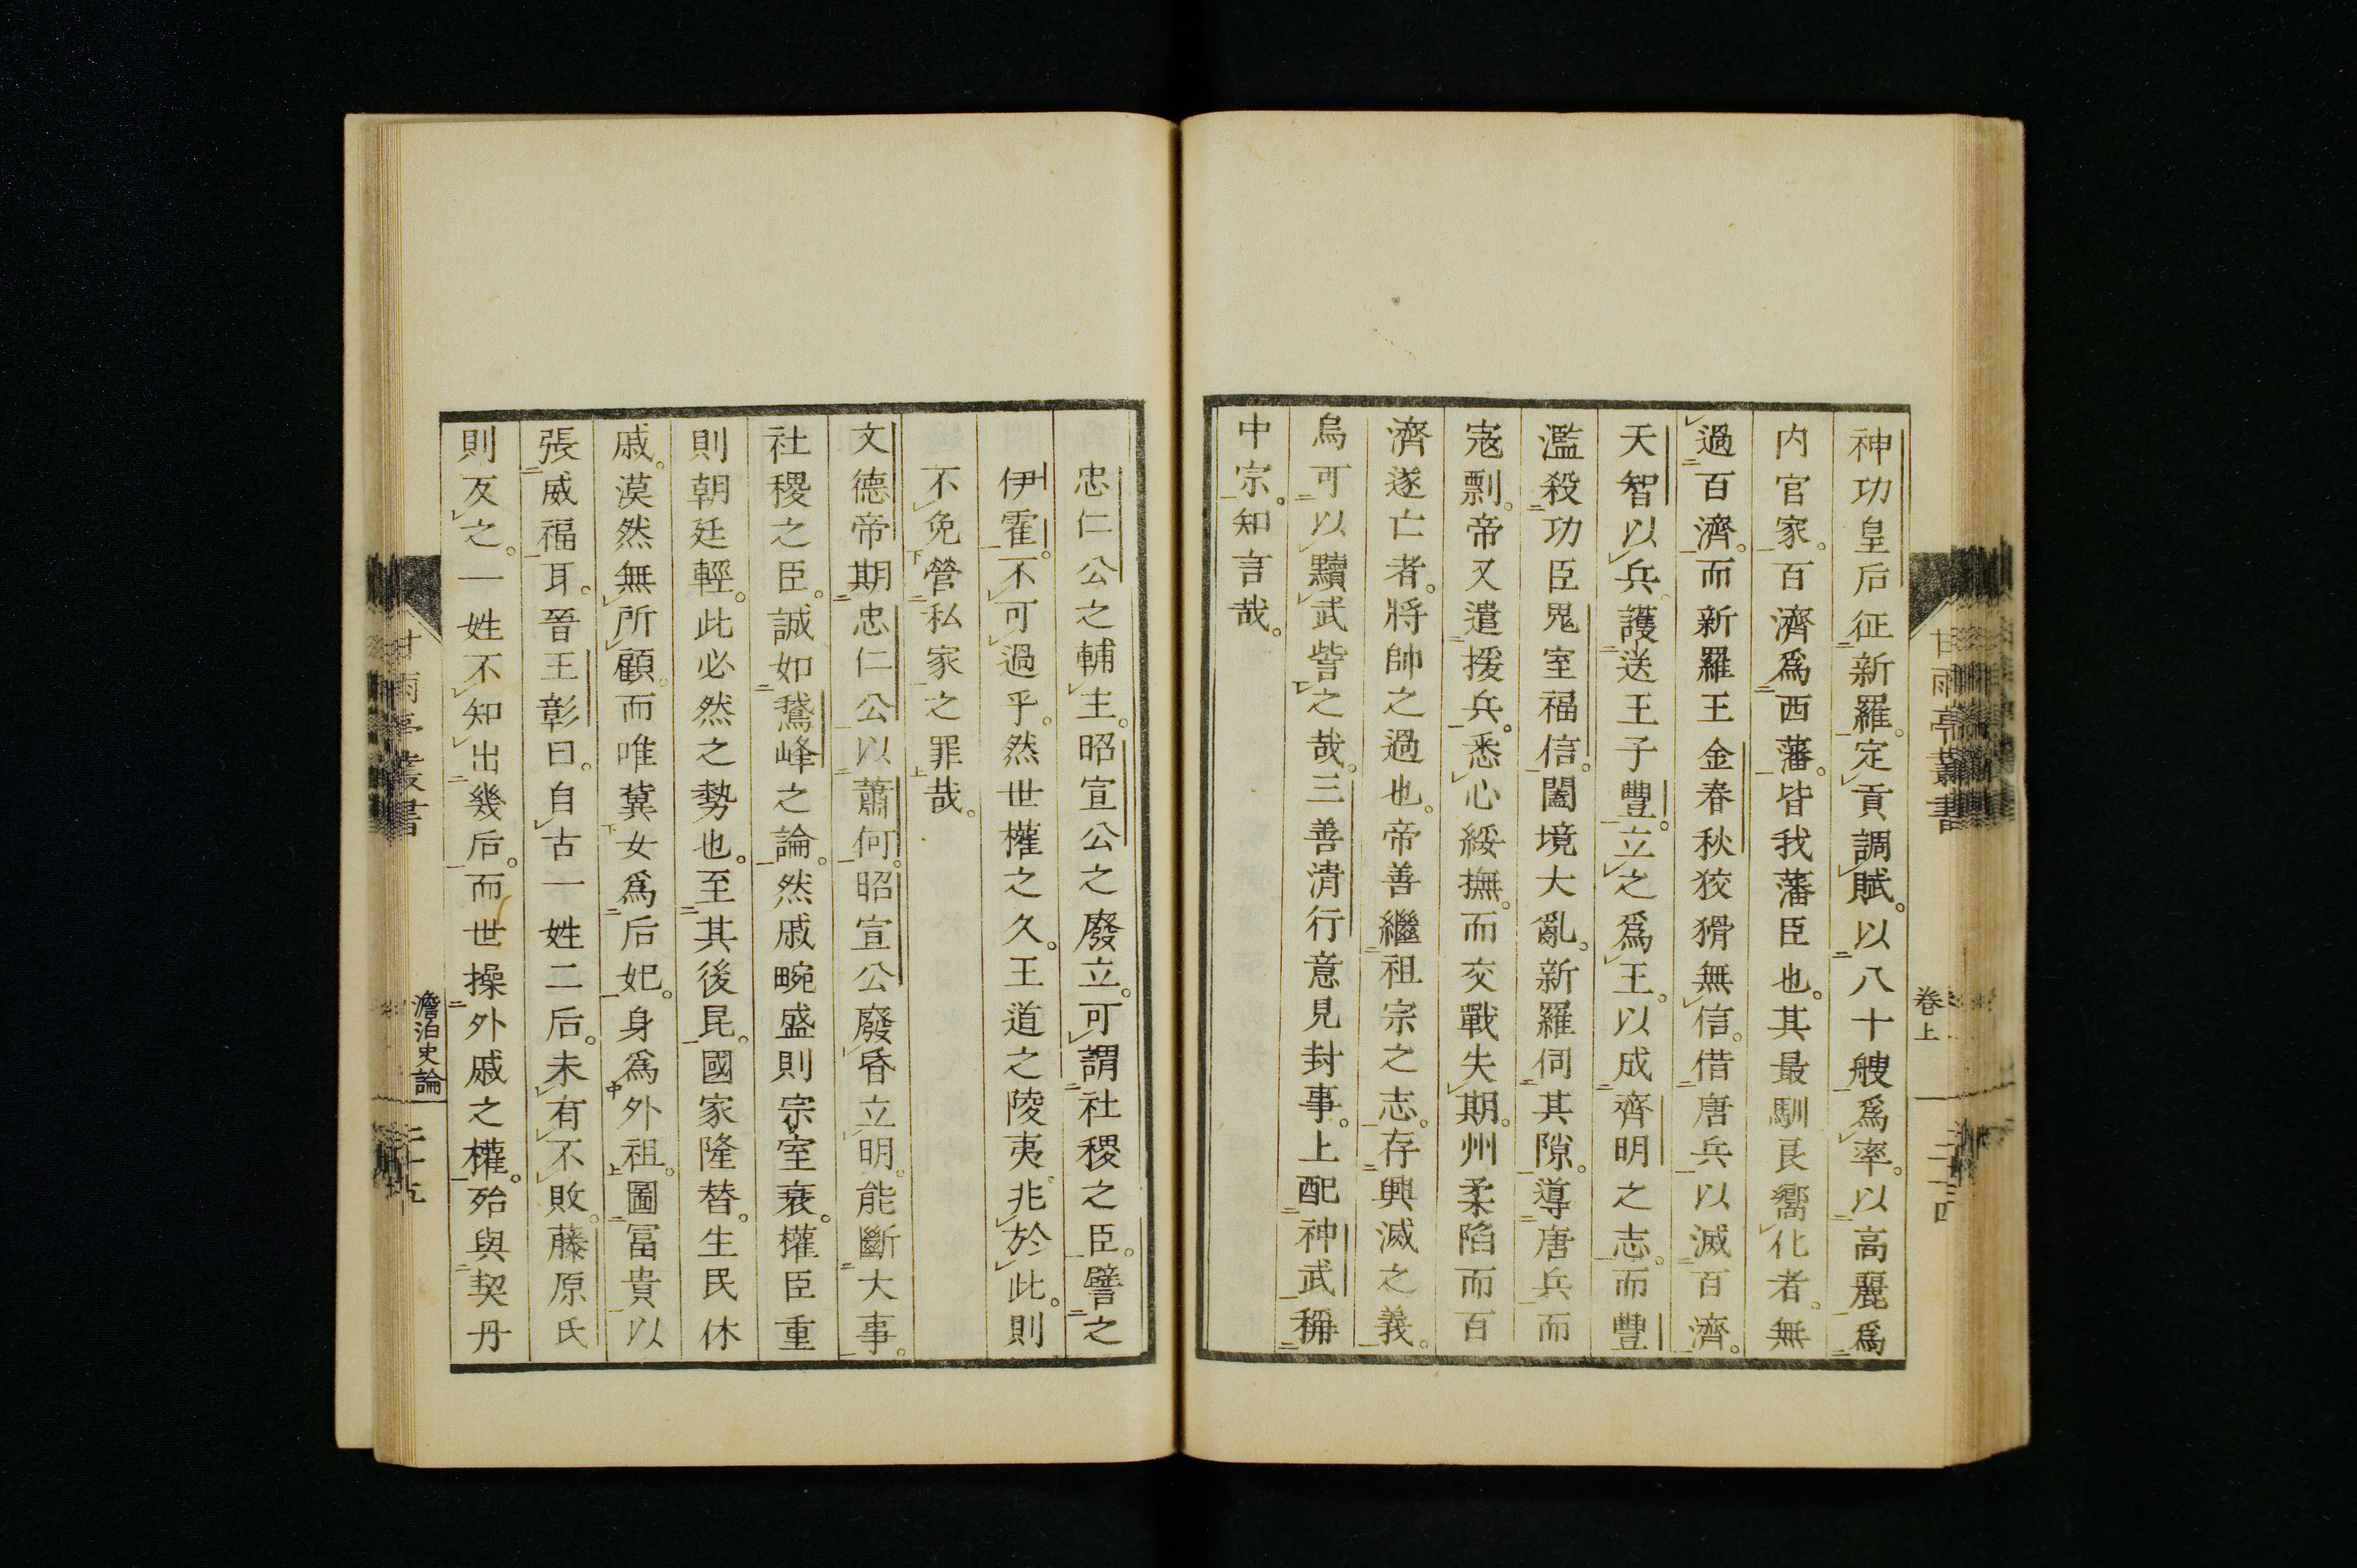 神功皇后征新羅。定貢調賦。以八十艘爲率。以高麗爲
内官家。百濟爲西藩。皆我藩臣也。其最馴良嚮化者。無
過百濟。而新羅王金春秋狡猾無信。借唐兵以滅百濟。
天智以兵護送王子豐。立之爲王。以成齊明之志。而豐
濫殺功臣鬼室福信。闔境大亂。新羅伺其隙。導唐兵而
寇剽。帝又遣援兵。悉心綏撫。而交戰失期。州柔陷而百
濟遂亡者。將帥之過也。帝善繼祖宗之志。存興滅之義。
烏可以黷武訾之哉。三善清行意見封事。上配神武稱
中宗。知言哉。
甘雨亭叢書
卷上
二十四
忠仁公之輔主。昭宣公之廢立。可謂社稷之臣。譬之
伊霍。不可過乎。然世權之久。王道之陵夷。兆於此。則
不免營私家之罪哉。
文德帝期忠仁公以蕭何。昭宣公廢昏立明。能斷大事。
社稷之臣。誠如鵞峰之論。然戚畹盛則宗室衰。權臣重
則朝廷輕。此必然之勢也。至其後昆。國家隆替。生民休
戚。漠然無所顧。而唯冀女爲后妃。身爲外祖。圖冨貴以
張威福耳。晉王彰曰。自古一姓二后。未有不敗。藤原氏
則反之。一姓不知出幾后。而世操外戚之權。殆與契丹
甘雨亭叢書
澹泊史論
二十五